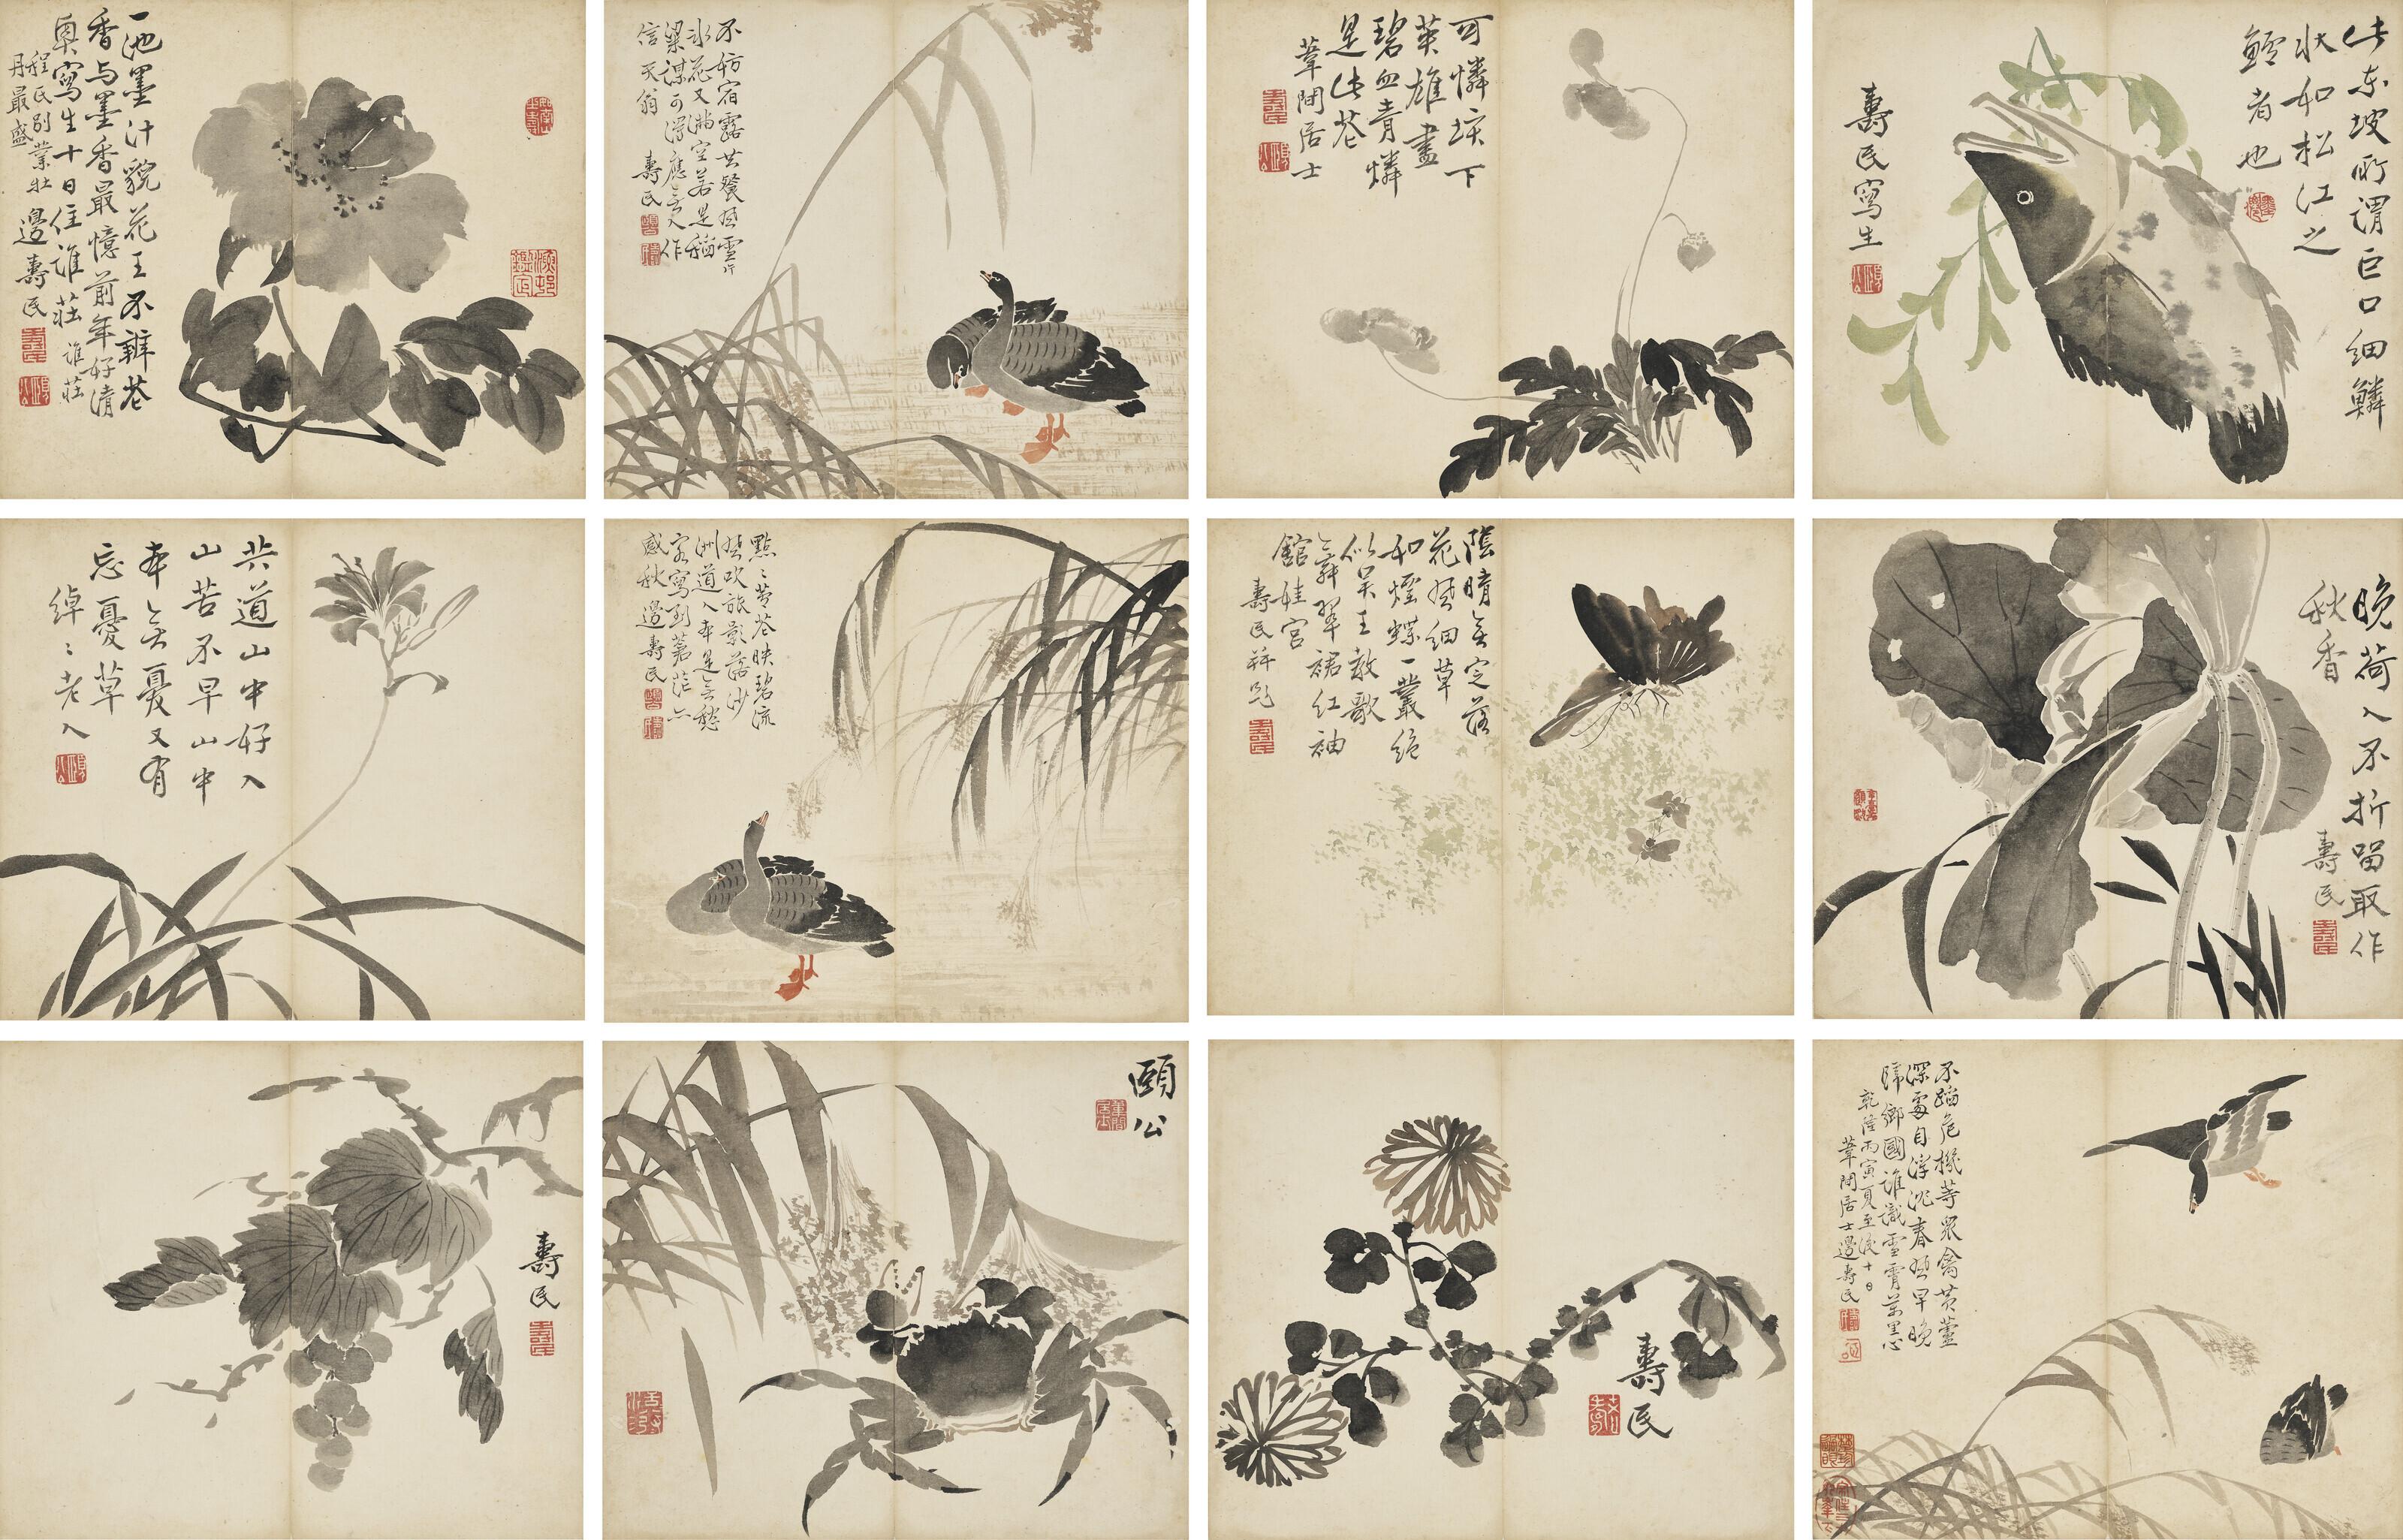 一池墨汁貌花王不辨花
香与墨香最憶前年好清
興寫生十日住誰莊 誰莊
程氏別業牡
丹最盛 邊壽民
不妨宿露共餐風雪片
冰花又滿空若是稻
粱謀可得應無人作
信天翁 壽民
可憐垓下
英雄盡
碧血青燐
是此花
葦間居士
此東坡所謂巨口細鱗
狀如松江之
鱸者也
壽民寫生
共道山中好人
山苦不早山中
本無憂又有
忘憂草
綽〻老人
點〻花映碧流
風吹旅影落沙
洲道人本是無愁
客寫到蒼茫亦
感秋 邊壽民
陰晴無定落
花風細草
和煙蝶一叢絕
似吳王教歌
舞翠裙紅袖
館娃宮
壽民并題
晚荷人不折留取作
秋香
壽民
壽民
頤公
壽民
不蹈危機等眾禽黃蘆
深處自浮沈春風早晚
歸鄉國誰識雲霄萬里心
乾隆丙寅夏至後十日
葦間居士邊壽民